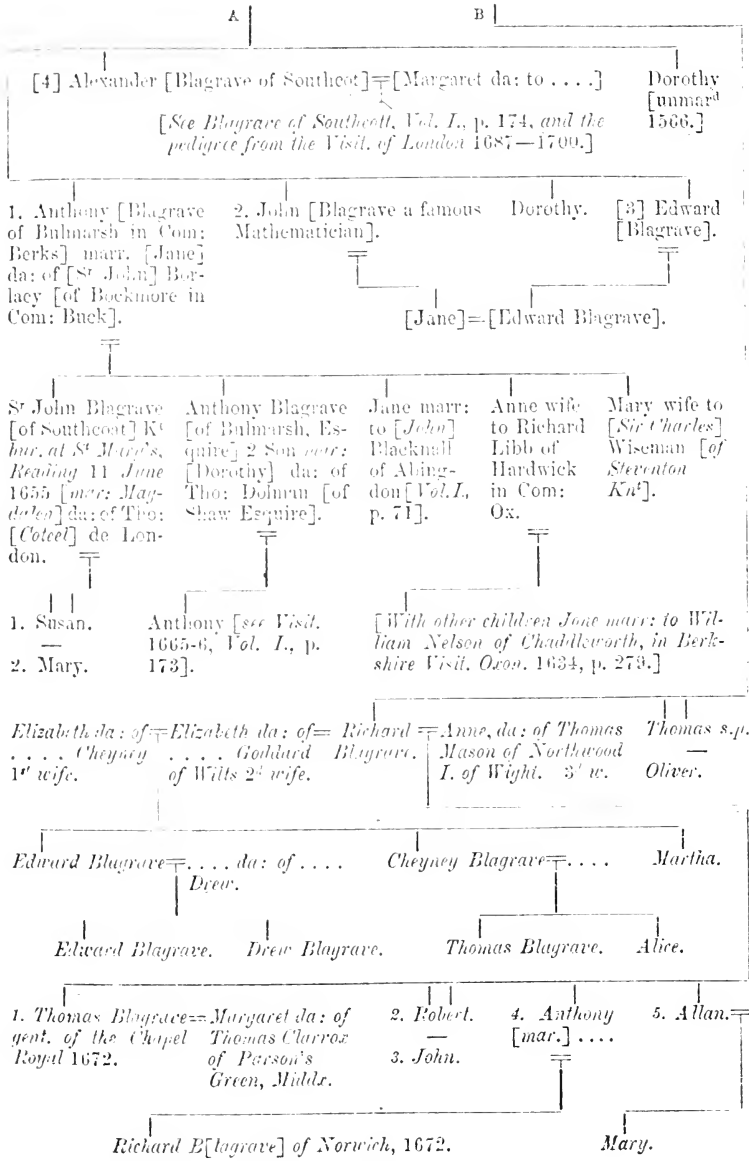 A B
[4] Alexander [Blagrave of Southcot]=[Margaret da: to . . . .] Dorothy
[unmard
1566.]
[See Blagrave of Southcott, Vol. I., p. 174, and the
pedigree from the Visit. of London 1687—1700.]
1. Anthony [Blagrave
of Bulmarsh in Com:
Berks] marr. [Jane]
da: of [Sr John] Bor-
lacy [of Bockmore in
Com: Buck].
2. John [Blagrave a famous
Mathematician].
Dorothy.
[3] Edward
[Blagrave].
[Jane]=[Edward Blagrave].
Sr John Blagrave
[of Southcoat] Kt
bur. at St Mary's,
Reading 11 June
1655 [mar: Mag-
dalen] da: of Tho:
[Coteel] de Lon-
don.
Anthony Blagrave
[of Bulmarsh, Es-
quire] 2 Son
[Dorothy] da: of
Tho: Dolman [of
Shaw Esquire].
Jane marr:
to [John]
Blacknall
of Abing-
don [Vol. I.,
p. 71].
Anne wife
to Richard
Libb of
Hardwick
in Com:
Ox.
Mary wife to
[Sir Charles]
Wiseman [of
Steventon
Knt].
1. Susan.
—
2. Mary.
Anthony [see Visit.
1665-6, Vol. I., p.
173].
[With other children Jone marr: to Wil-
liam Nelson of Chaddleworth, in Berk-
shire Visit. Oxon. 1634, p. 279.]
Elizabeth da: of
. . . . Cheyney
1st wife.
Elizabeth da: of
. . . . Goddard
of Wilts 2d wife.
Richard
Blagrave.
Anne, da: of Thomas
Mason of Northwood
I. of Wight. 3d w.
Thomas s.p.
—
Oliver.
Edward Blagrave= . . . . da: of . . . .
Drew.
Cheyney Blagrave= . . . .
Martha.
Edward Blagrave. Drew Blagrave. Thomas Blagrave. Alice.
1. Thomas Blagrave=
gent. of the Chapel
Royal 1672.
Margaret da: of
Thomas Clarrox
of Parson's
Green, Middx.
2. Robert.
—
3. John.
4. Anthony
[mar.] . . . .
5. Allan.=
Richard B[lagrave] of Norwich, 1672. Mary.